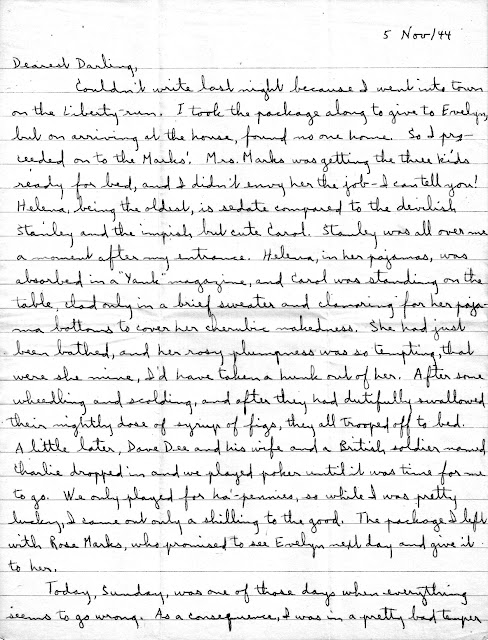 5 Nov/44
Dearest Darling,
Couldn't write last night because I went into town
on the Liberty-run. I took the package along to give to Evelyn,
but on arriving at the house, found no one home. So I pro-
ceeded on to the Marks'. Mrs. Marks was getting the three kids
ready for bed, and I didn't envy her the job - I can tell you!
Helena, being the oldest, is sedate compared to the devilish
Stanley and the impish but cute Carol. Stanley was all over me
a moment after my entrance. Helena, in her pajamas, was
absorbed in a "Yank" magazine, and Carol was standing on the
table, clad only in a brief sweater and clamoring for her paja-
ma bottoms to cover her cherubic nakedness. She had just
been bathed, and her rosy plumpness was so tempting, that
were she mine, I'd have taken a hunk out of her. After some
wheedling and scolding, and after they had dutifully swallowed
their nightly dose of syrup of figs, they all trooped off to bed.
A little later, Dave Dee and his wife and a British soldier named
Charlie dropped in and we played poker until it was time for me
to go. We only played for ha'-pennies, so while I was pretty
lucky, I came out only a shilling to the good. The package I left
with Rose Marks, who promised to see Evelyn next day and give it
to her.
Today, Sunday, was one of those days when everything
seems to go wrong. As a consequence, I was in a pretty bad temper